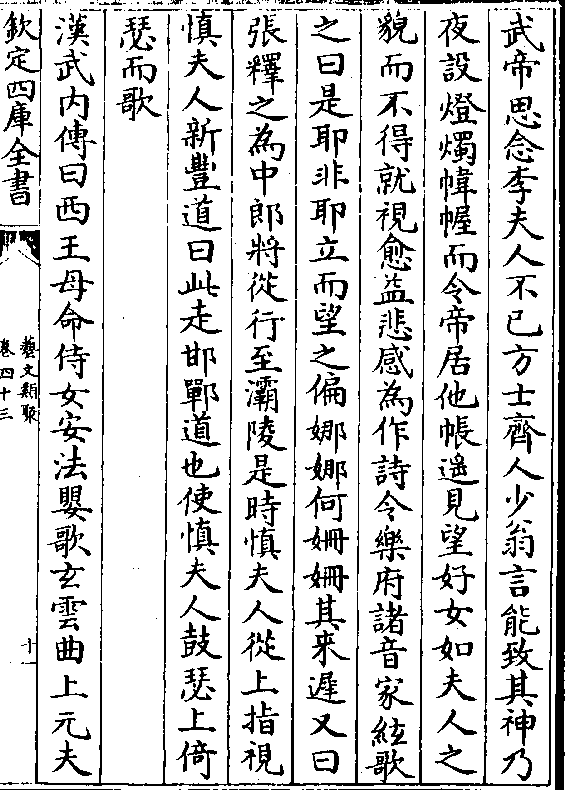 武帝思念李夫人不已方士齊人少翁言能致其神乃
夜設燈燭幃幄而令帝居他帳遥見望好女如夫人之
貌而不得就視愈益悲感為作詩令樂府諸音家絃歌
之曰是耶非耶立而望之偏娜娜何姍姍其来遲又曰
張釋之為中郎將從行至灞陵是時慎夫人從上指視
慎夫人新豐道曰此走邯鄲道也使慎夫人鼓瑟上倚
瑟而歌
漢武内傳曰西王母命侍女安法嬰歌玄雲曲上元夫
欽定四庫全書
藝文類聚
卷四十三
十一